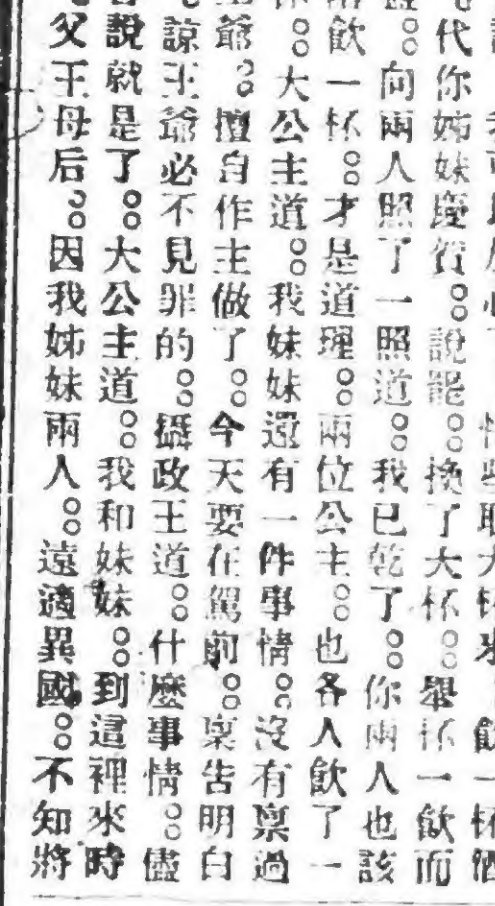 飲一杯酒
代你姊妹慶賀。。說罷。。換了大杯。。舉杯一飲而
向兩人照了一照道。。我已乾了。。你兩人也該
飲一杯。。才是道理。。兩位公主。。也各人飲了一
大公主道。。我妹妹還有一件事情。。沒有稟過
爺。。擅自作主做了。。今天要在駕前。。稟告明白
諒王爺必不見罪的。。攝政王道。。什麼事情。。儘
說就是了。。大公主道。。我和妹妹。。到這裡來時
父王母后。。因我姊妹兩人。。遠適異國。。不知將